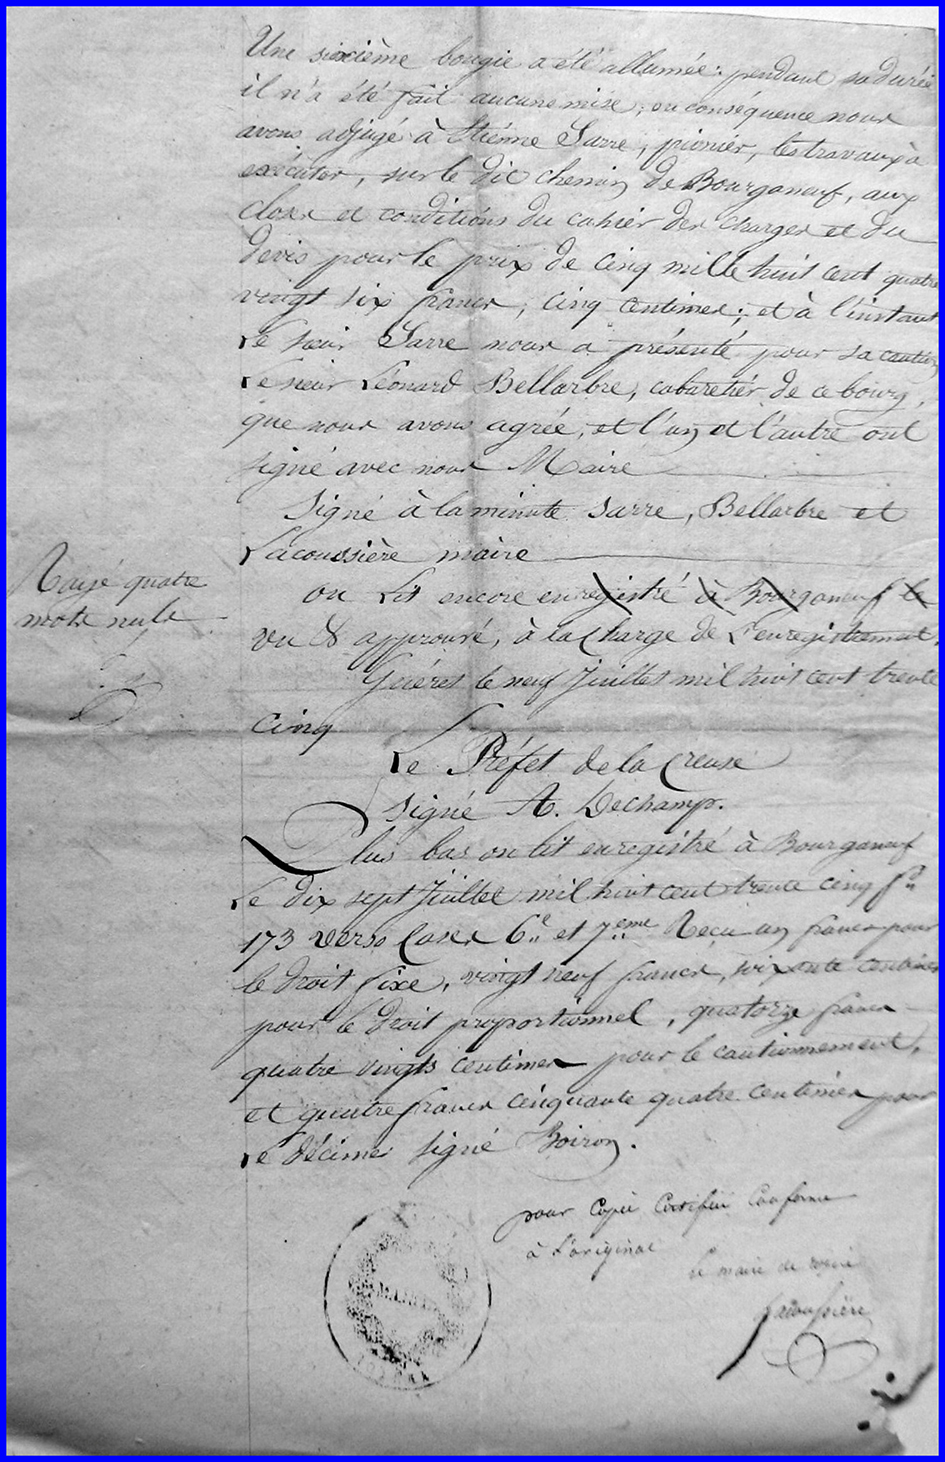 Une sixième bougie a été allumée : pendant sa durée
il n'a été fait aucune mise ; en conséquence nous
avons adjugé à Etiénne Sarre, pionier, les travaux à
exécuter, sur le dit chemin de Bourganeuf, aux
closes et conditions du cahier des charges et du
devis pour le prix de cinq mille huit cent quatre
vingt six francs, cinq centimes ; et à l'instant
Le sieur Sarre nous a présenté pour sa caution
Le sieur Léonard Bellarbre, cabaretiér de ce bourg,
que nous avons agrée, et l'un et l'autre ont
signé avec nous Maire
Signé à la minute Sarre, Bellarbre et
Lacoussière maire
Rayé quatre
mots nuls
on Lit encore enregistré à Bourganeuf le
vu & approuvé, à la charge de L'enregistrement,
Guéret le neuf Juillet mil huit cent trente
cinq
Le Préfet de la Creuse
Signé A. Dechamp.
Plus bas on lit enregistré à Bourganeuf
Le dix sept Juillet mil huit cent trente cinq f°
173 verso Cases 6e et 7eme Reçu un franc pour
le droit fixe, vingt neuf francs, soixante centimes
pour le droit proportionnel, quatorze francs
quatre vingts centimes pour le cautionnement,
et quatre francs cinquante quatre centimes pour
Le décime signé Boiron.
pour Copie Certifiée Conforme
à L'original
Le maire de
Lacoussière
MAIRIE